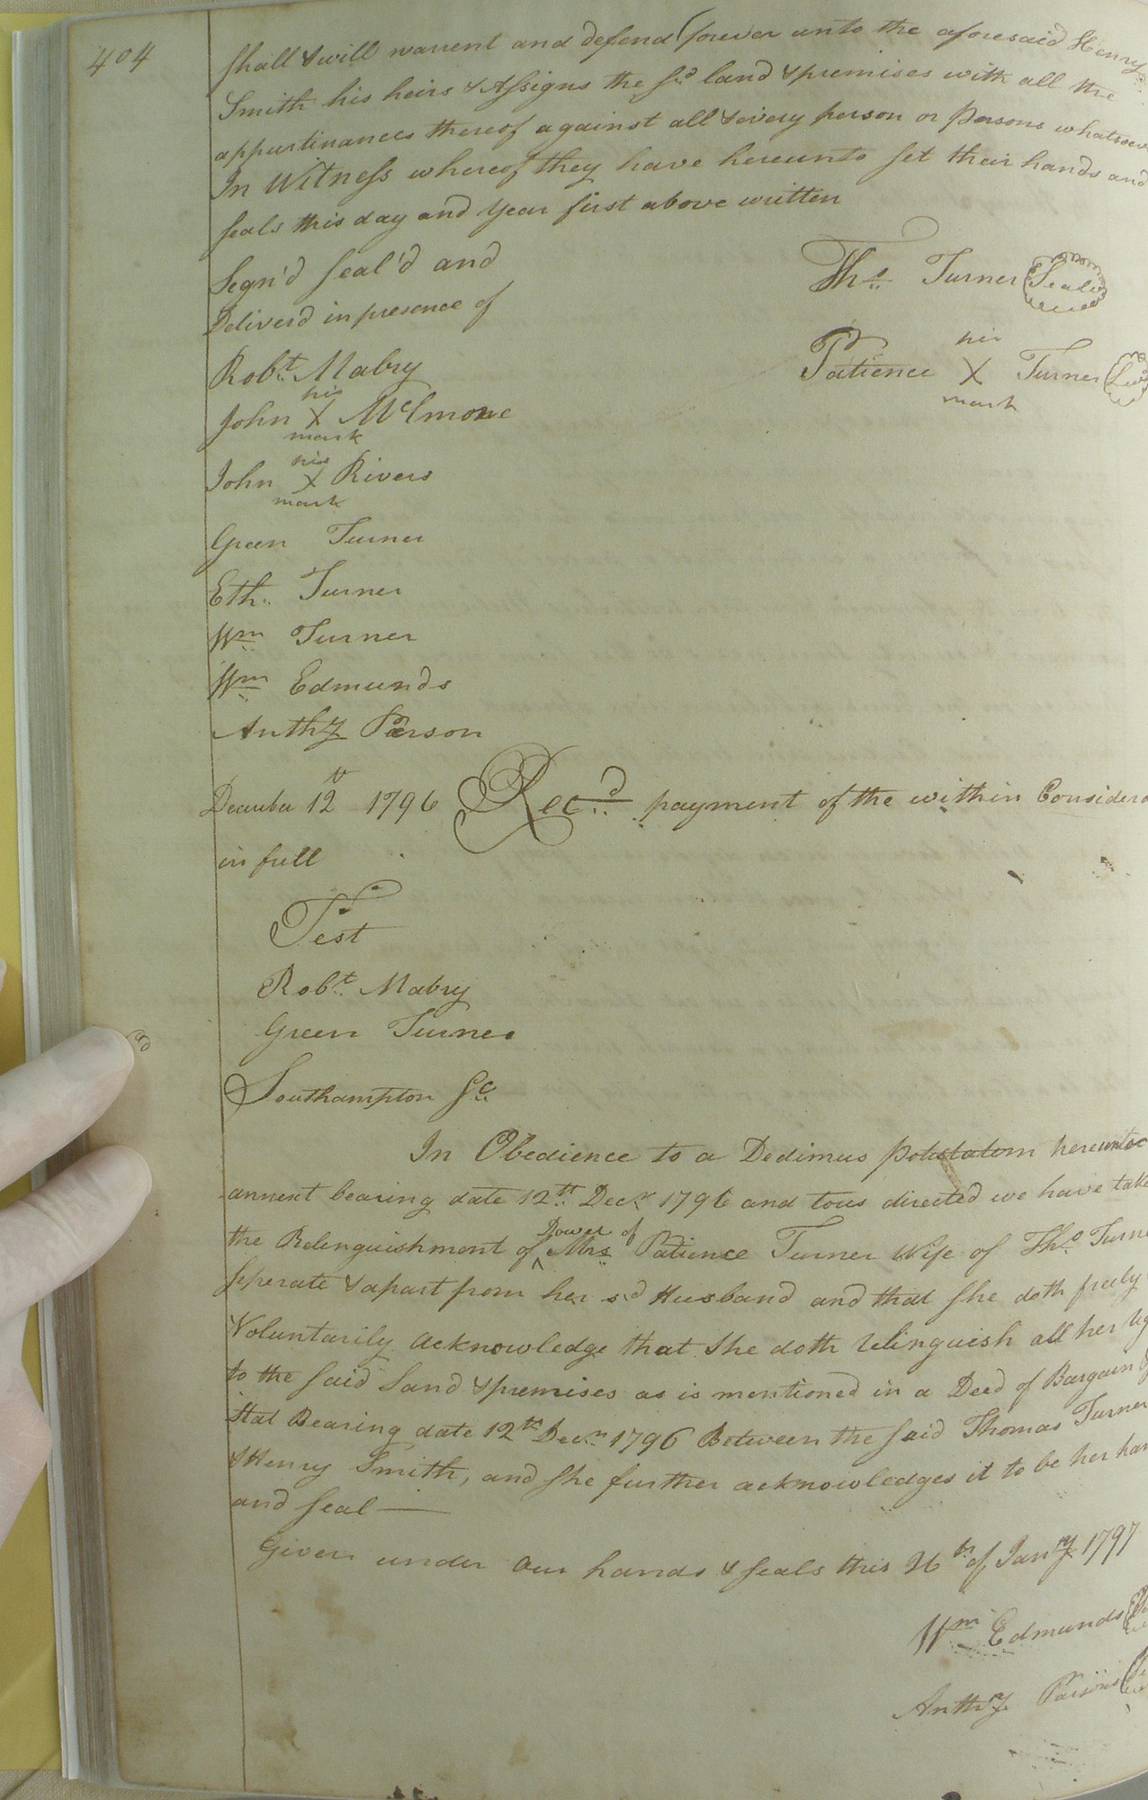 404
shall & will warrent and defend forever unto the aforesaid Henry
Smith his heirs & Assigns the sd. land & premises with all the
appurtinances thereof against all & every person or Persons whatsoev
In Witness whereof they have hereunto set their hands and
seals this day and year first above written
Segn'd Seal'd and
Deliverd in presence of
Thos. Turner Seal
Robt. Mabry
his
Patience X Turner
mark
his
John X McLmore
mark
his
John X Rivers
mark
Green Turner
Eth. Turner
Wm Turner
Wm Edmunds
Anthy Parson
December 12th 1796 Recd. payment of the within Considera
in full
Test
Robt. Mabry
Green Turner
Southampton Sc.
In Obedience to a Dedimus potestatem hereunto
annext bearing date 12th. Decr. 1796 and tous directed we have take
the Relinguishment of Dower of Mrs. Patience Turner Wife of Thos. Turne
seperate & apart from her sd Husband and that she doth freely
Voluntarily acknowledge that she doth relinguish all her rig
to the said Land & premises as is mentioned in a Deed of Bargain &
Bearing date 12th Decr. 1796 Between the said Thomas Turner
& Henry Smith, and she further acknowledges it to be her han
and seal
Given under our hands & seals this 26th of Jany. 1797
Wm Edmunds
Anthy Parsons